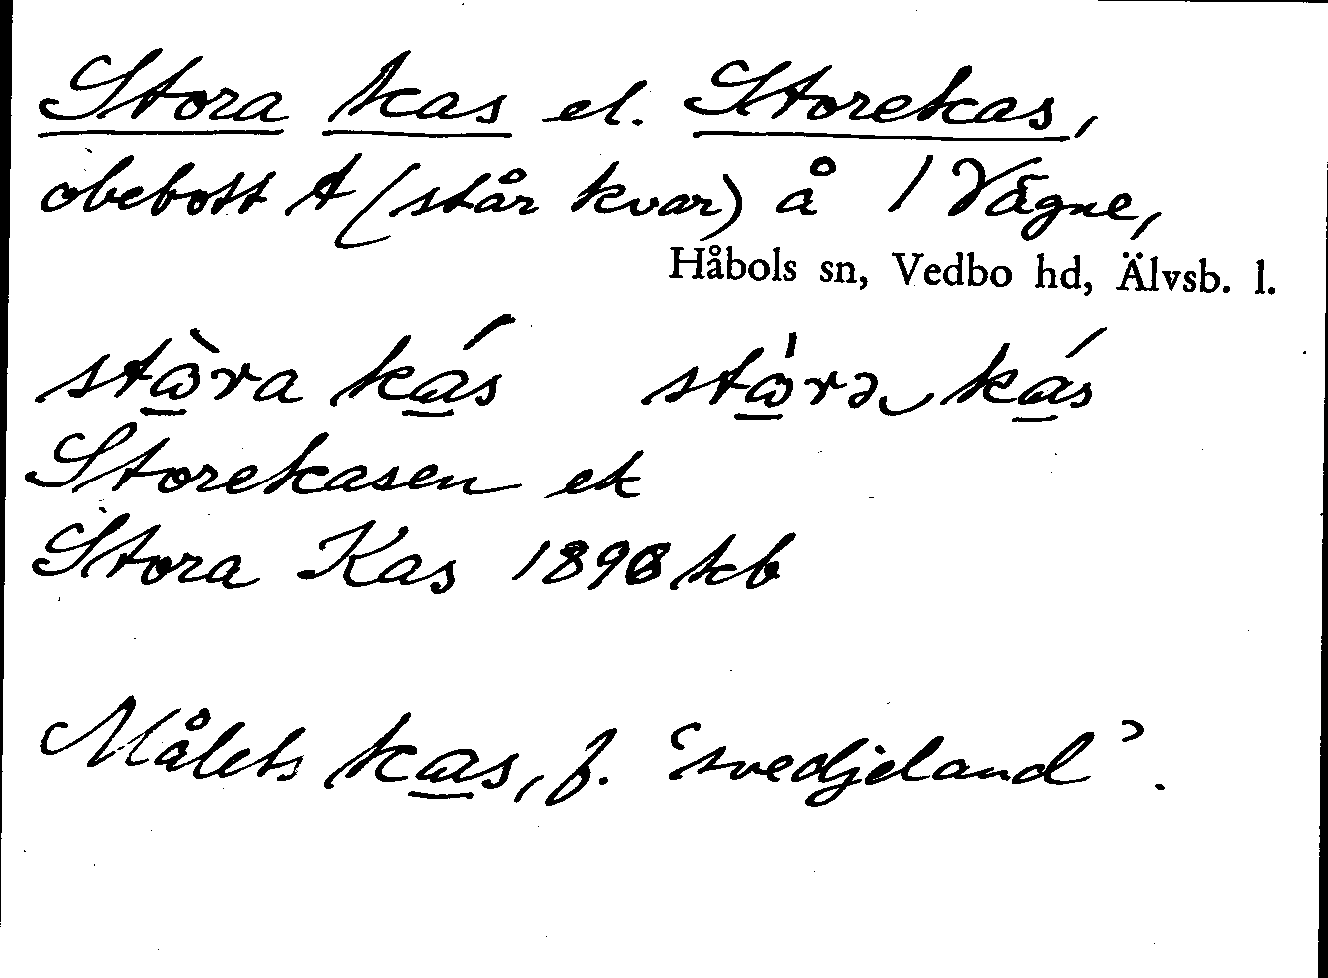 Stora kas el. Storekas,
obebott t (står kvar) å 1 Vägne,
Håbols sn, Vedbo hd, Älvsb. l.
stὼra kás stω̍rə‿kás
Storekasen ek
Stora Kas 1898 kb
Målets kas, f. ‘svedjeland’.